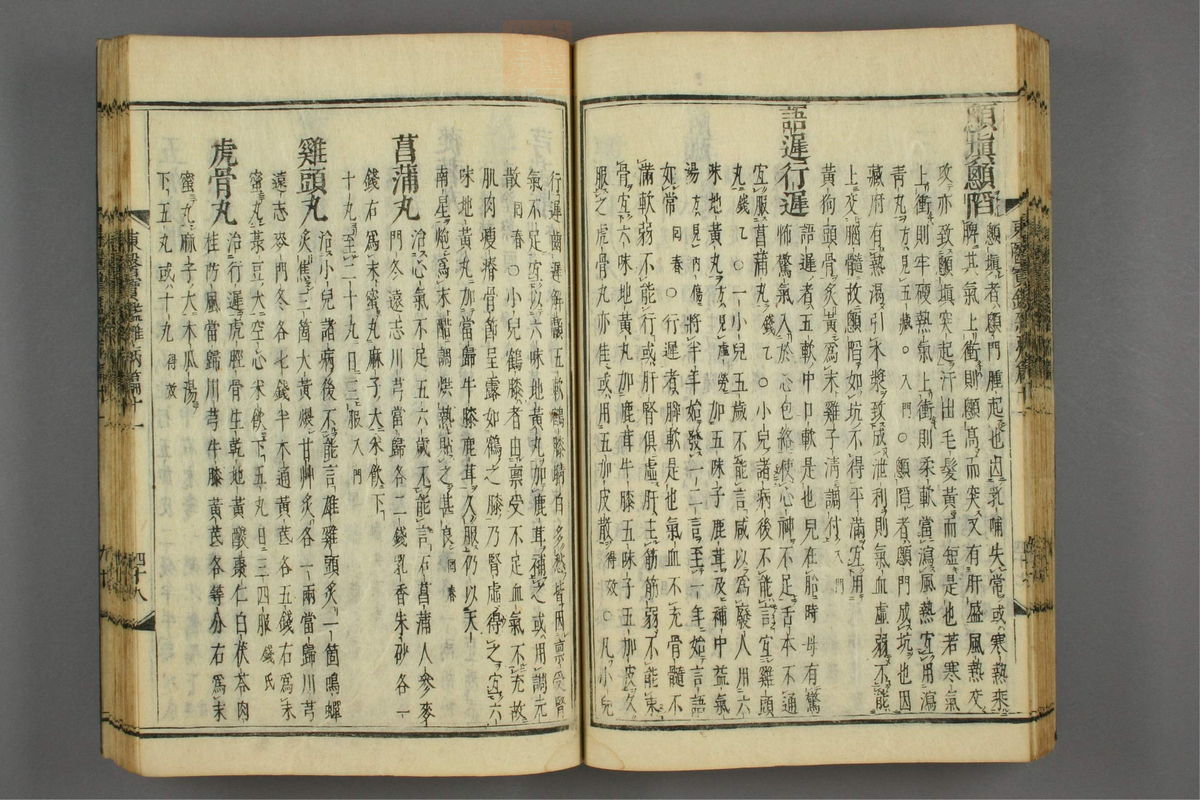 顖塡顖陷 顖塡者顖門腫起也因乳哺失常或寒熱乘
於脾其氣上衝則顖高而突又有肝盛風熱交
攻亦致顖塡突起汗出毛髮黃而短是也若寒氣
上衝則牢硬熱氣上衝則柔軟當瀉風熱宜用瀉
靑丸方見五藏○入門○顖陷者顖門成坑也因
藏府有熱渴引水漿致成泄利則氣血虛弱不能
上交腦髓故顖陷如坑不得平滿宜用
黃狗頭骨炙黃爲末雞子淸調付入門
語遲行遲 語遲者五軟中口軟是也兒在胎時母有驚
怖驚氣入於心包絡使心神不足舌本不通
宜服菖蒲丸錢乙○小兒諸病後不能言宜雞頭
丸錢乙○一小兒五歲不能言咸以爲廢人用六
味地黃丸方見虛勞加五味子鹿茸及補中益氣
湯方見內傷將半年始發一二言至一年始言語
如常回春○行遲者脚軟是也氣血不充骨髓不
滿軟弱不能行或肝腎俱虛肝主筋筋弱不能束
骨宜六味地黃丸加鹿茸牛膝五味子五加皮久
服之虎骨丸亦佳或用五加皮散得效○凡小兒
行遲齒遲解顱五軟鶴膝睛白多愁皆因稟受腎
氣不足宜以六味地黃丸加鹿茸補之或用調元
散回春○小兒鶴膝者由稟受不足血氣不充故
肌肉瘦瘠骨節呈露如鶴之膝乃腎虛得之宜六
味地黃丸加當歸牛膝鹿茸久服仍以天
南星炮爲末醋調烘熱貼之甚良回春
菖蒲丸 治心氣不足五六歲不能言石菖蒲人參麥
門冬遠志川芎當歸各二錢乳香朱砂各一
錢右爲末蜜丸麻子大米飮下
十丸至二十丸日三服入門
雞頭丸 治小兒諸病後不能言雄雞頭炙一箇鳴蟬
炙焦三箇大黃煨甘艸炙各一兩當歸川芎
遠志麥門冬各七錢半木通黃芪各五錢右爲末
蜜丸菉豆大空心米飮下五丸日三四服錢氏
虎骨丸 治行遲虎脛骨生乾地黃酸棗仁白茯苓肉
桂防風當歸川芎牛膝黃芪各等分右爲末
蜜丸麻子大木瓜湯
下五丸或十丸得效
東醫寶鑑雜病篇十一
四十八